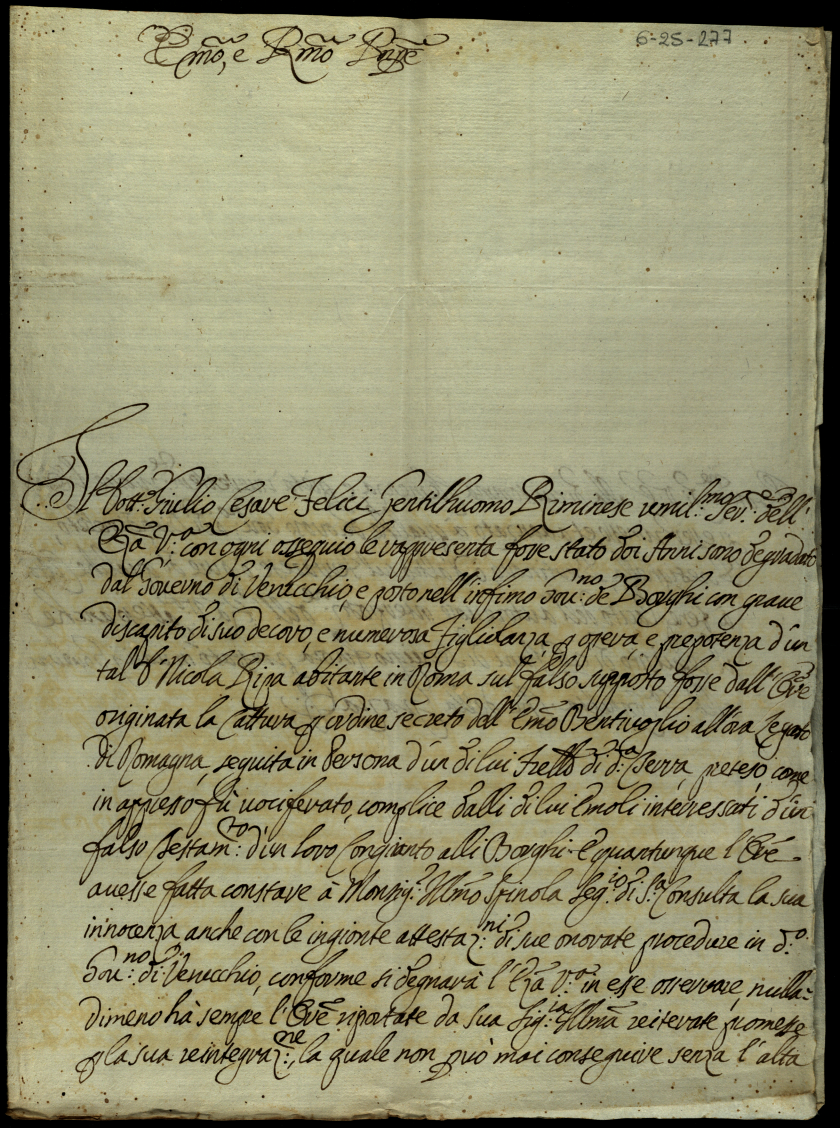 6-25-277
Em̃o, e Rm̃o Prñpe
Il Dott.r Giulio Cesare Felici Gentilhuomo Riminese umil.mo Ser.e dell'
Eza V.a con ogni ossequio le rappresenta fosse stato doi Anni sono degradato
dal Governo di Verucchio, e posto nell'infimo Gov.no de Borghi con grave
discapito di suo decoro, e numerosa Figliolanza, p opera, e prepotenza d'un
tal D. Nicola Ripa abitante in Roma sul falso supposto fosse dall'Orẽ
originata la Cattura p ordine secreto dell'Em̃o Bentivoglio allora Legato
di Romagna, seguita in Persona d'un di lui Frello di d.a Terra, preteso come
in appresso fù vociferato, complice dalli di lui Emoli interressati d'un
falso Testam.to d'un loro Congionto alli Borghi. E quantunque l'Orẽ
avesse fatta constare à Monsig.r Illm̃o Spinola Seg.rio di S.a Consulta la sua
innocenza anche con le ingionte attestaz.ni di sue onorate procedure in d.o
Gov.no di Verucchio, conforme si degnarà l'Eza V.a in esse osservare, nulla-
dimeno hà sempre l'Orẽ riportate da sua Sig.ria Illm̃a reiterate promesse
p la sua reintegraz.ne, la quale non può mai conseguire senza l'alta